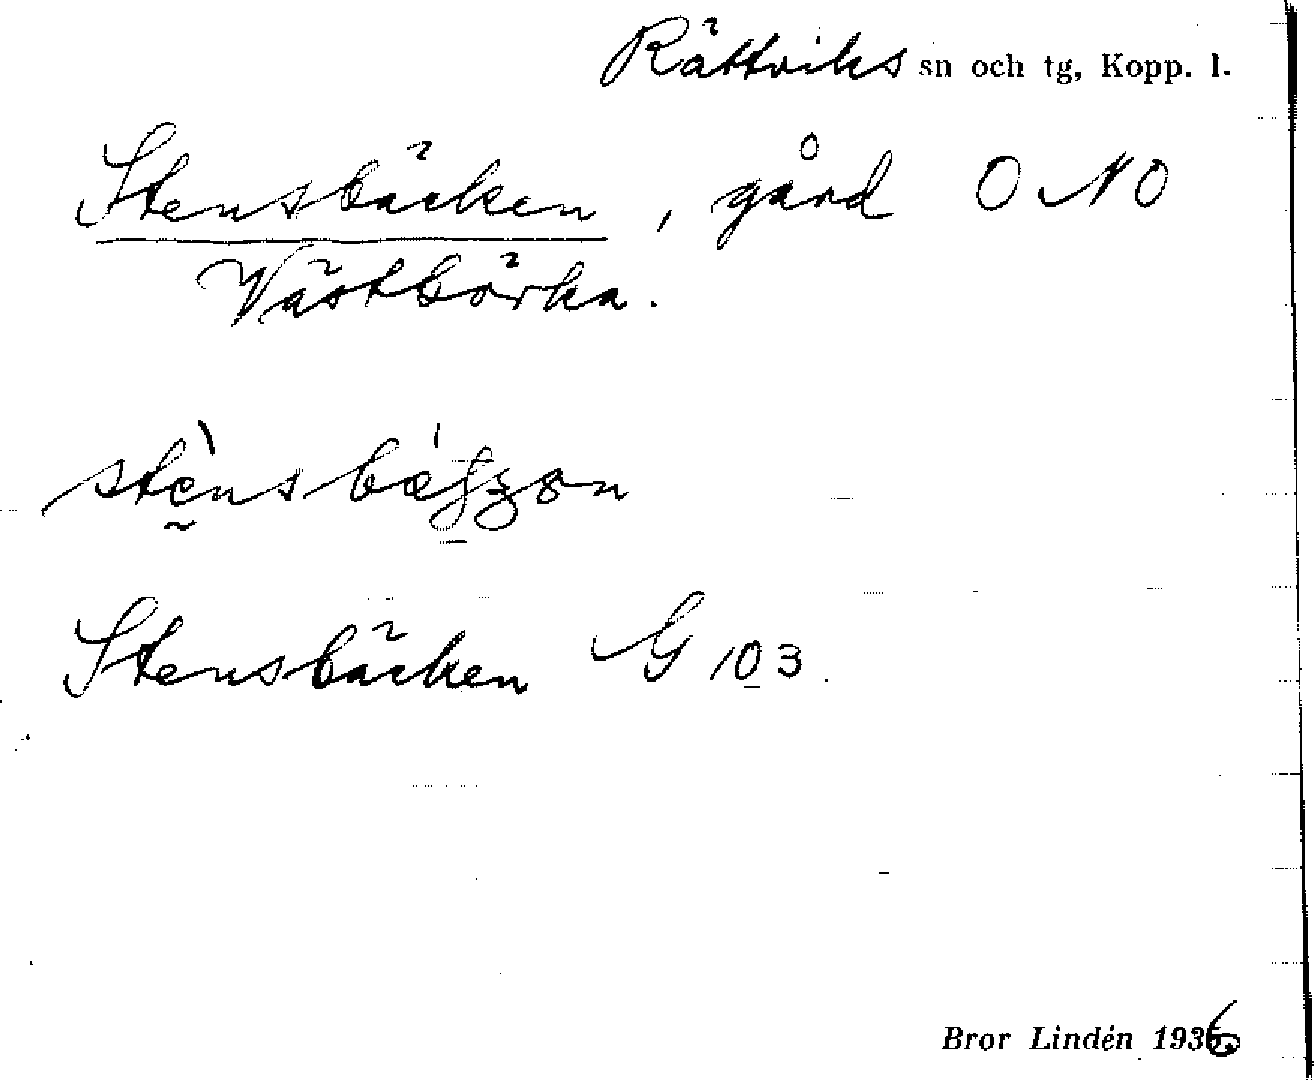 Rättviks sn och tg, Kopp. l.
Stensbäcken, gård ONO
Västbörka.
Stensbäcken G 103
Bror Lindén 1936